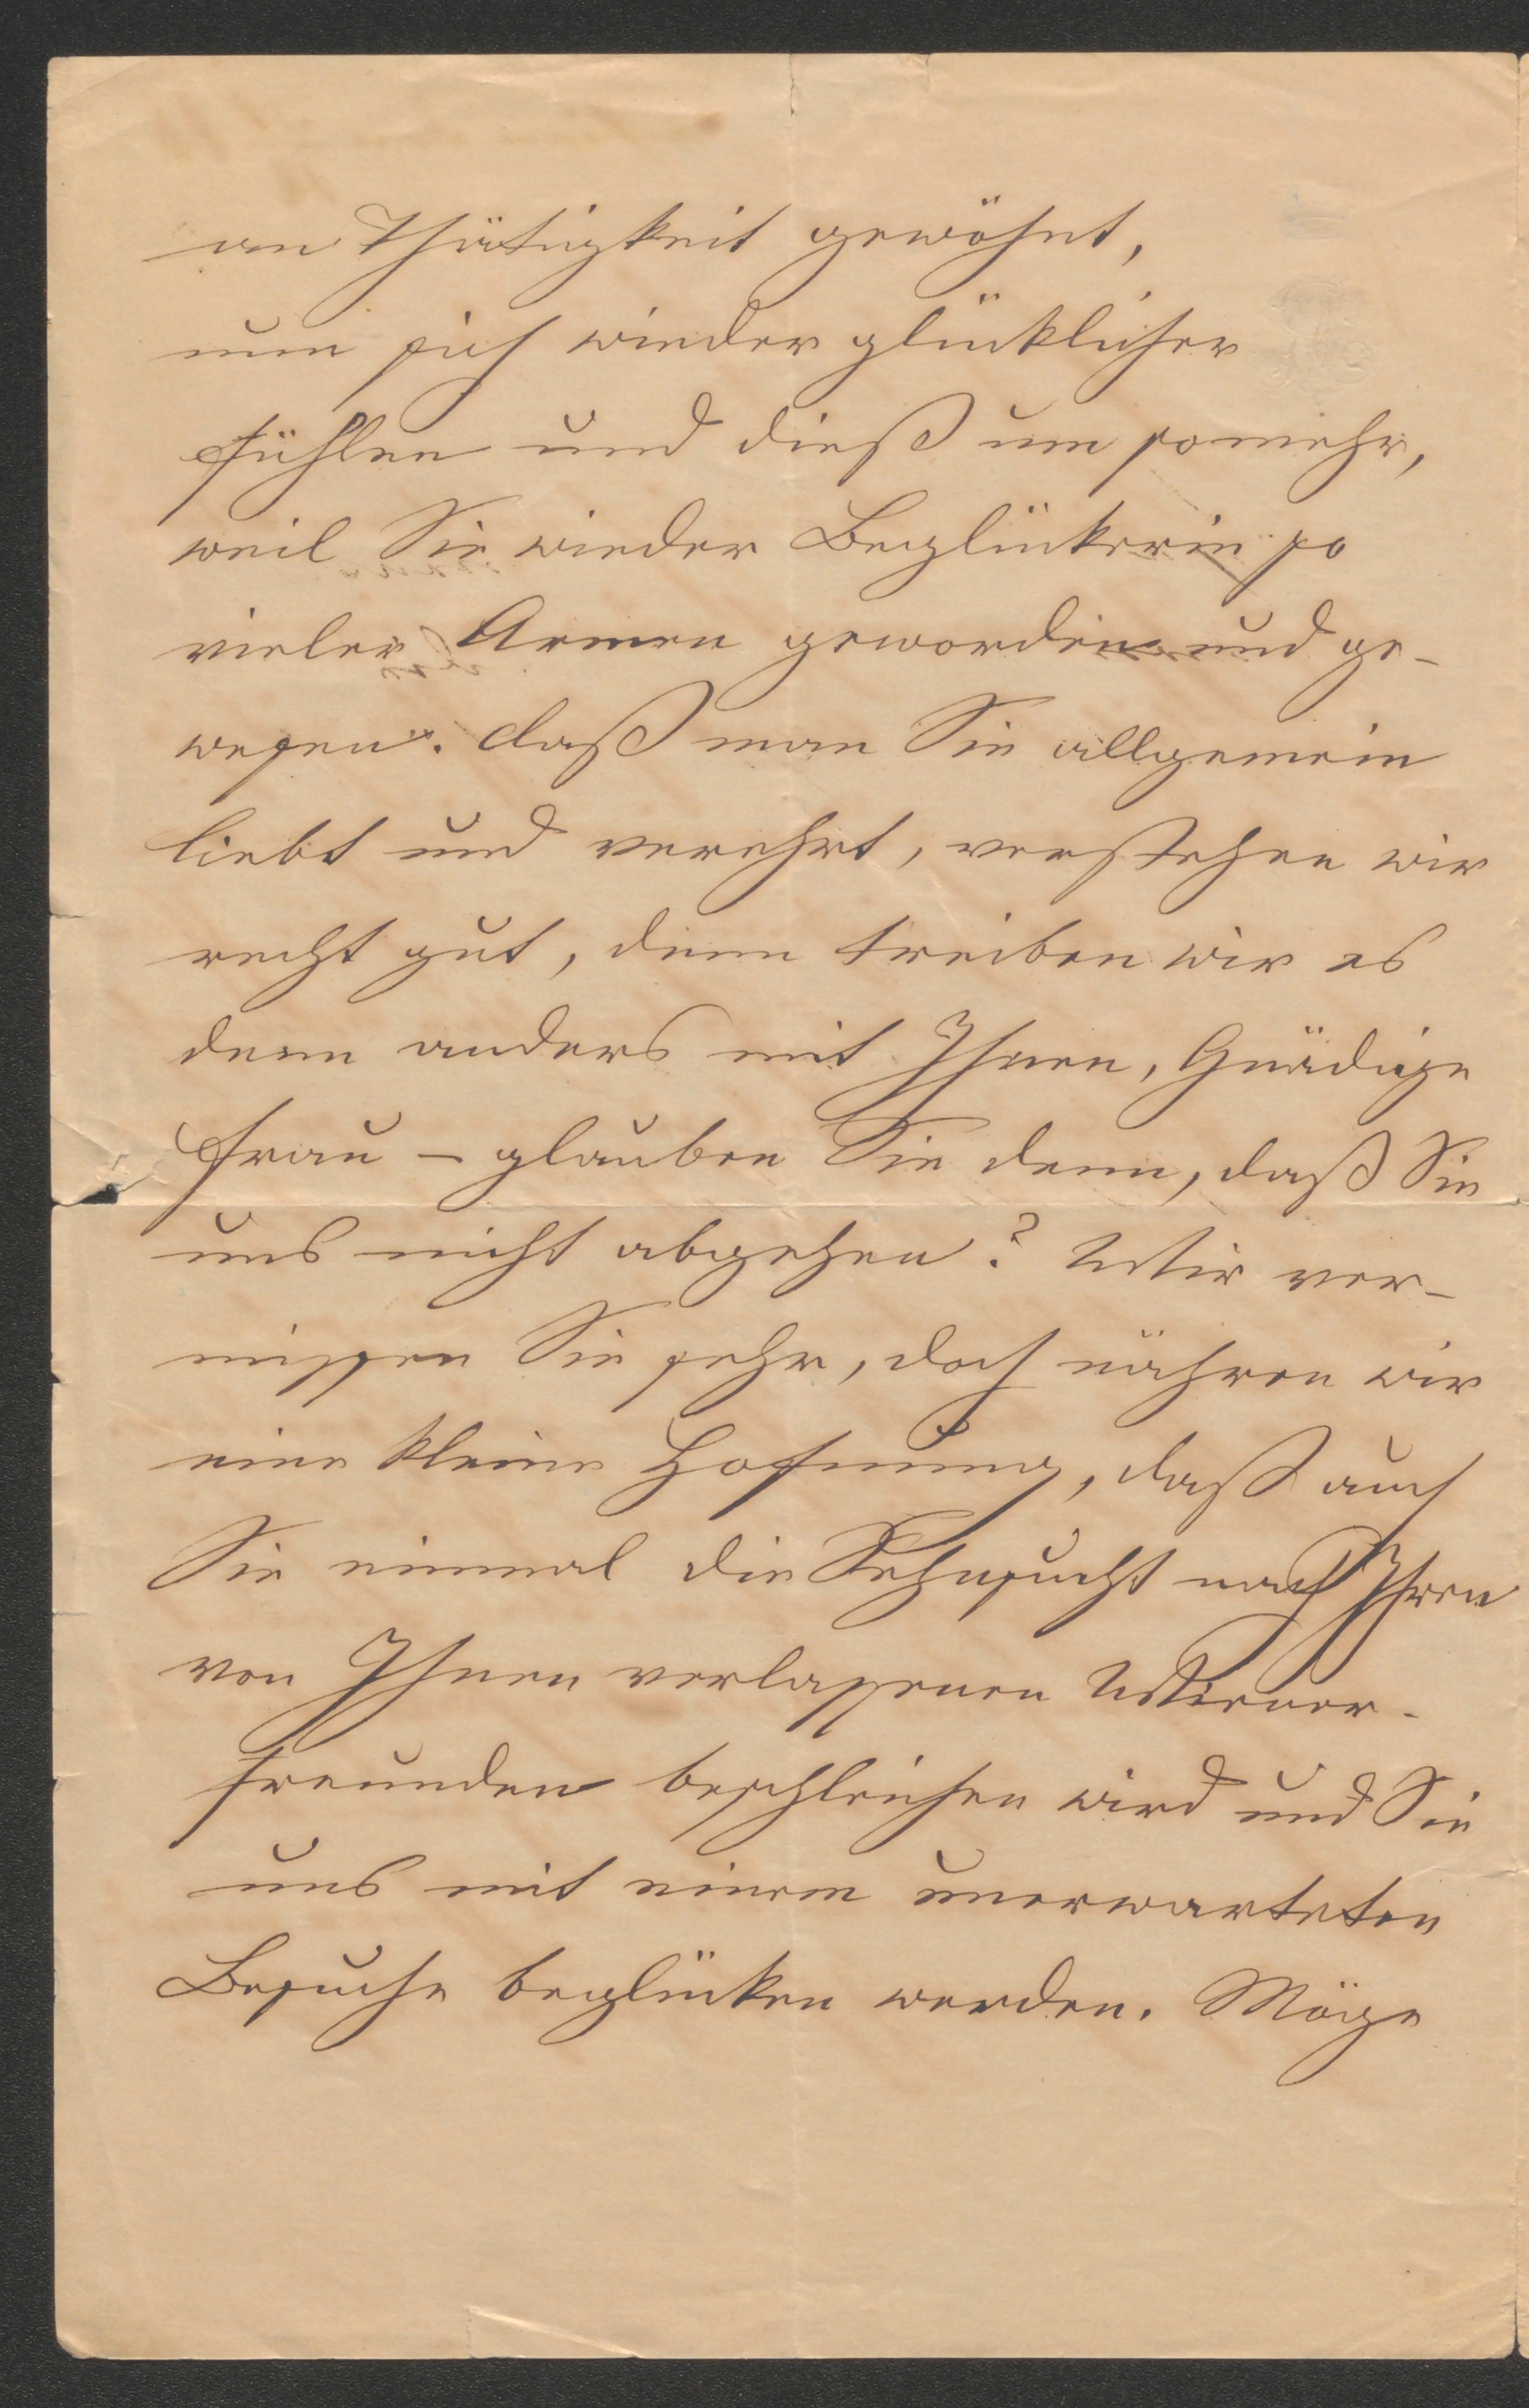 an Thätigkeit gewöhnt,
nun sich wieder glücklicher
fühlen und dieß um somehr,
weil Sie wieder Beglückerin so
vieler Armen geworden und ge-
wesen. daß man Sie allgemein
liebt und verehrt, verstehen wir
recht gut, denn treiben wir es
denn anders mit Ihnen, Gnädige
Frau – glauben Sie denn, daß Sie
uns nicht abgehen? Wir ver-
missen Sie sehr, doch nähren wir
eine kleine Hofnung, daß auch
Sie einmal die Sehnsucht nach Ihren
von Ihnen verlassenen Wiener-
freunden beschleichen wird und Sie
uns mit einem unerwarteten
Besuche beglücken werden. Möge